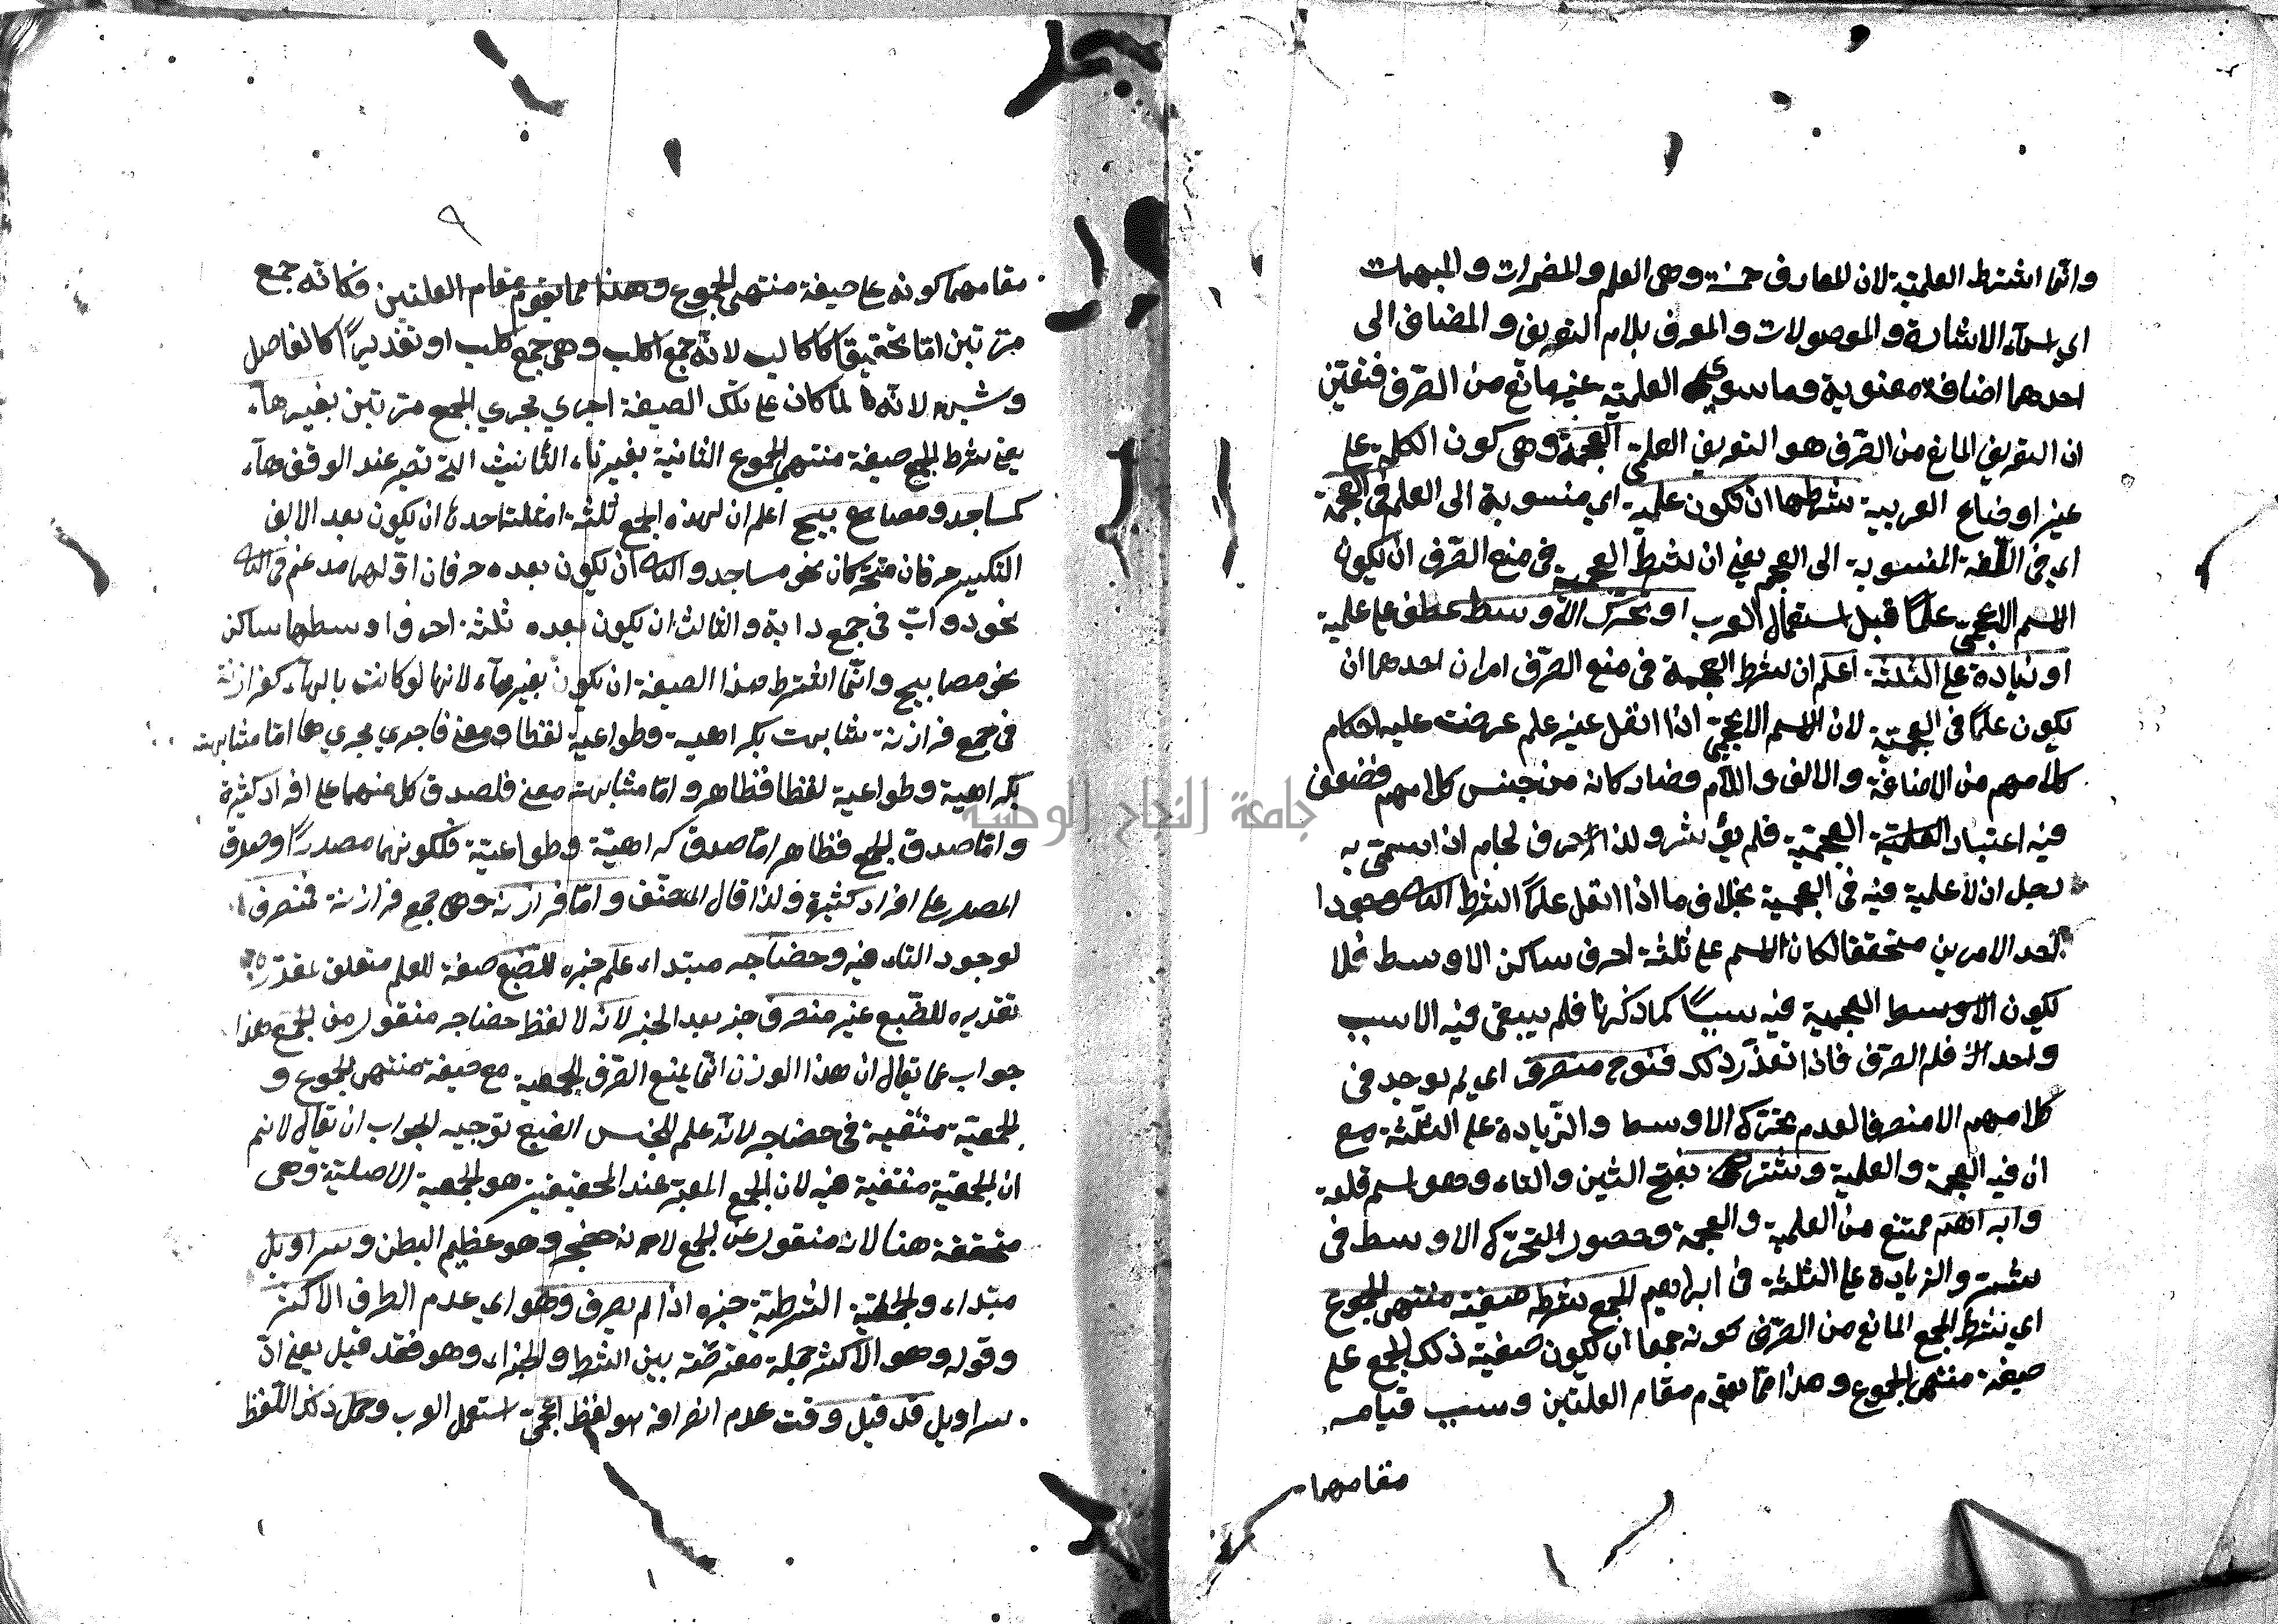 وانما اشترط العلمية لان المعارف خمسة وهى العلم والمضمرات والمبهمات
اي اسماء الاشارة والموصولات والمعرف بلام التعريف والمضاف الى
احدهما اضافة معنوية وما سوى العلمية غير مانع من الصرف فتعين
ان التعريف المانع من الصرف هو التعريف العلمى العجمة وهى كون الكلمة على
غير اوضاع العربية شرطها ان تكون علمية اي منسوبة الى العلم فى العجمة
اي فى اللغة المنسوبة الى العجم يعنى ان شرط العجمة فى منع الصرف ان يكون
الاسم الاعجمى علما قبل استعمال العرب او تحرك الاوسط عطف على علمية
او زيادة على الثلثة اعلم ان شرط العجمة فى منع الصرف امران احدهما ان
يكون علما فى العجمية لان الاسم الاعجمى اذا انقل غير علم عرضت عليه احكام
كلامهم من الاضافة والالف واللام فصار كانه من جنس كلامهم فضعف
فيه اعتبار العلمية العجمية فلم يؤثر ولذا صرف لجام اذا سمى به
رجل ان لا علمية فيه فى العجمية بخلاف ما اذا انقل علما الشرط الثانى وجود
احد الامرين متحققا لكان الاسم على ثلثة احرف ساكن الاوسط فلا
تكون الاوسط العجمية فيه سببا كما ذكرنا فلم يبقى فيه الا سبب
واحد فلم الصرف فاذا تعذر ذلك فنوح منصرف اي لم يوجد فى
كلامهم الا منصرفا لعدم تحركة الاوسط والزيادة على الثلثة مع
ان فيه العجمة والعلمية وشتر بفتح الشين والتاء وهو اسم قلعة
وابراهيم ممتنع من العلمية والعجمة وحصور التحركة الاوسط فى
شتر والزيادة على الثلثة فى ابراهيم الجمع شرطه صيغة منتهى الجموع
اي شرط الجمع المانع من الصرف كونه جمعا ان يكون صيغة ذلك الجمع على
صيغة منتهى الجموع وهذا مما يقوم مقام العلتين وسبب قيامه
مقامهما
٩
مقامهما كونه على صيغة منتهى الجموع وهذا مما يقوم مقام العلتين فكانه جمع
مرتين اما تحقيقا كاكالب لانه جمع اكلب وهى جمع كلب او تقديرا كالفاصل
وشبهه لانه لما كان على تلك الصيغة اجري مجرى الجمع مرتين بغير هاء
يعنى شرط الجمع صيغة منتهى الجموع الثانية بغير تاء التانيث التى تصير عند الوقف هاء
كمساجد ومصابيح اعلم ان لهذه الجمع ثلثة امثلة احدها ان يكون بعد الالف
التكسير حرفان متحركان نحو مساجد والثانى ان يكون بعده حرفان اولهما مدغم فى الثانى
نحو دواب فى جمع دابة والثالث ان يكون بعده ثلثة احرف اوسطها ساكن
نحو مصابيح وانما اشترط هذا الصيغة ان يكون بغير هاء لانها لو كانت بالهاء كفرازنة
فى جمع فرازنة شابهت بكراهية وطواعية لفظا ومعنى فاجري مجريهما اما مشابهته
بكراهية وطواعية لفظا فظاهر واما مشابهته معنى فلصدق كل منهما على افراد كثيرة
واما صدق الجمع فظاهر اما صدق كراهية وطواعية فلكونهما مصدرا وصدق
المصدر على افراد كثيرة ولذا قال المصنف واما فرازنة وهى جمع فرازنة فمنصرف
لوجود التاء فيه وحضاجر مبتداء علم خبره للضبع صفة للعلم متعلق بمقدر
تقديره للضبع غير منصرف خبر بعد الخبر لانه لا لفظ حضاجر منقول من الجمع هذا
جواب عما يقال ان هذا الوزن انما يمنع الصرف الجمعية مع صيغة منتهى الجموع و
الجمعية منتفية فى حضاجر لانه علم للجنس الضبع توجيه الجواب ان يقال لانم
ان الجمعية منتفية فيه لان الجمع المعتبر عند المحققين هو الجمعية الاصلية وهى
متحققة هنا لانه منقول عن الجمع لانه حضجر وهو عظيم البطن وسراويل
مبتداء والجملية الشرطية خبره اذا لم يصرف وهو اي عدم الصرف الاكثر
وقوله وهو الاكثر جملة معترضة بين الشرط والجزاء وهو فقد قيل يعنى ان
سراويل قد قيل وقت عدم انصرافه هو لفظ اعجمى استعمل العرب وحمل ذلك اللفظ
جامعة النجاح الوطنية